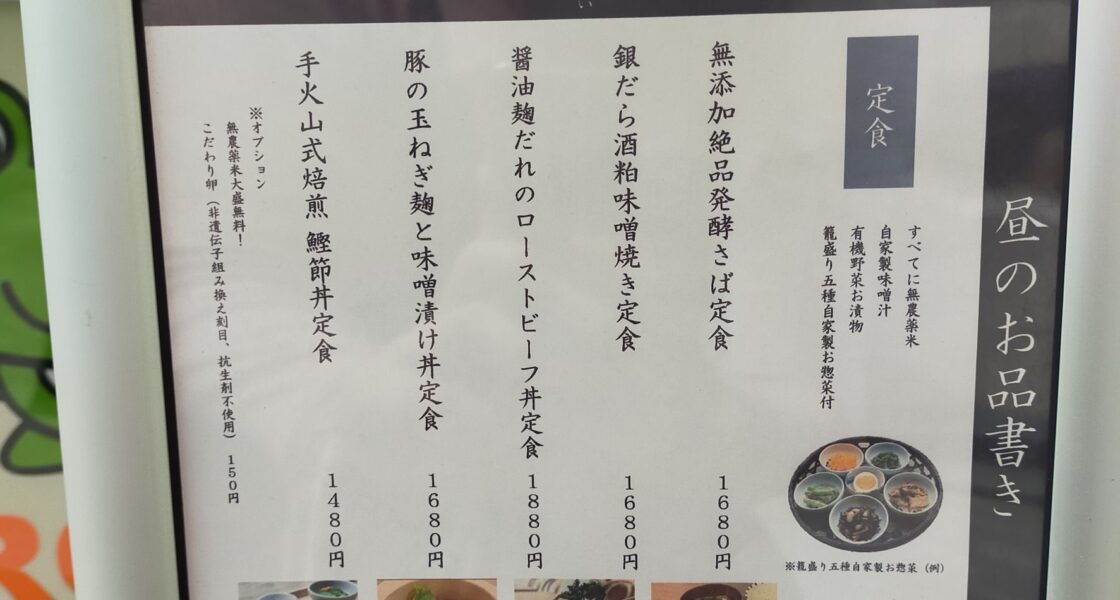 昼のお品書き
定食
すべてに無農薬米
自家製味噌汁
有機野菜お漬物
籠盛り五種自家製お惣菜付
※籠盛り五種自家製お惣菜（例）
無添加絶品発酵さば定食 1680円
銀だら酒粕味噌焼き定食 1680円
醤油麹だれのローストビーフ丼定食 1880円
豚の玉ねぎ麹と味噌漬け丼定食 1680円
手火山式焙煎 鰹節丼定食 1480円
※オプション
無農薬米大盛無料！
こだわり卵（非遺伝子組み換え刻目、抗生剤不使用） 150円
い